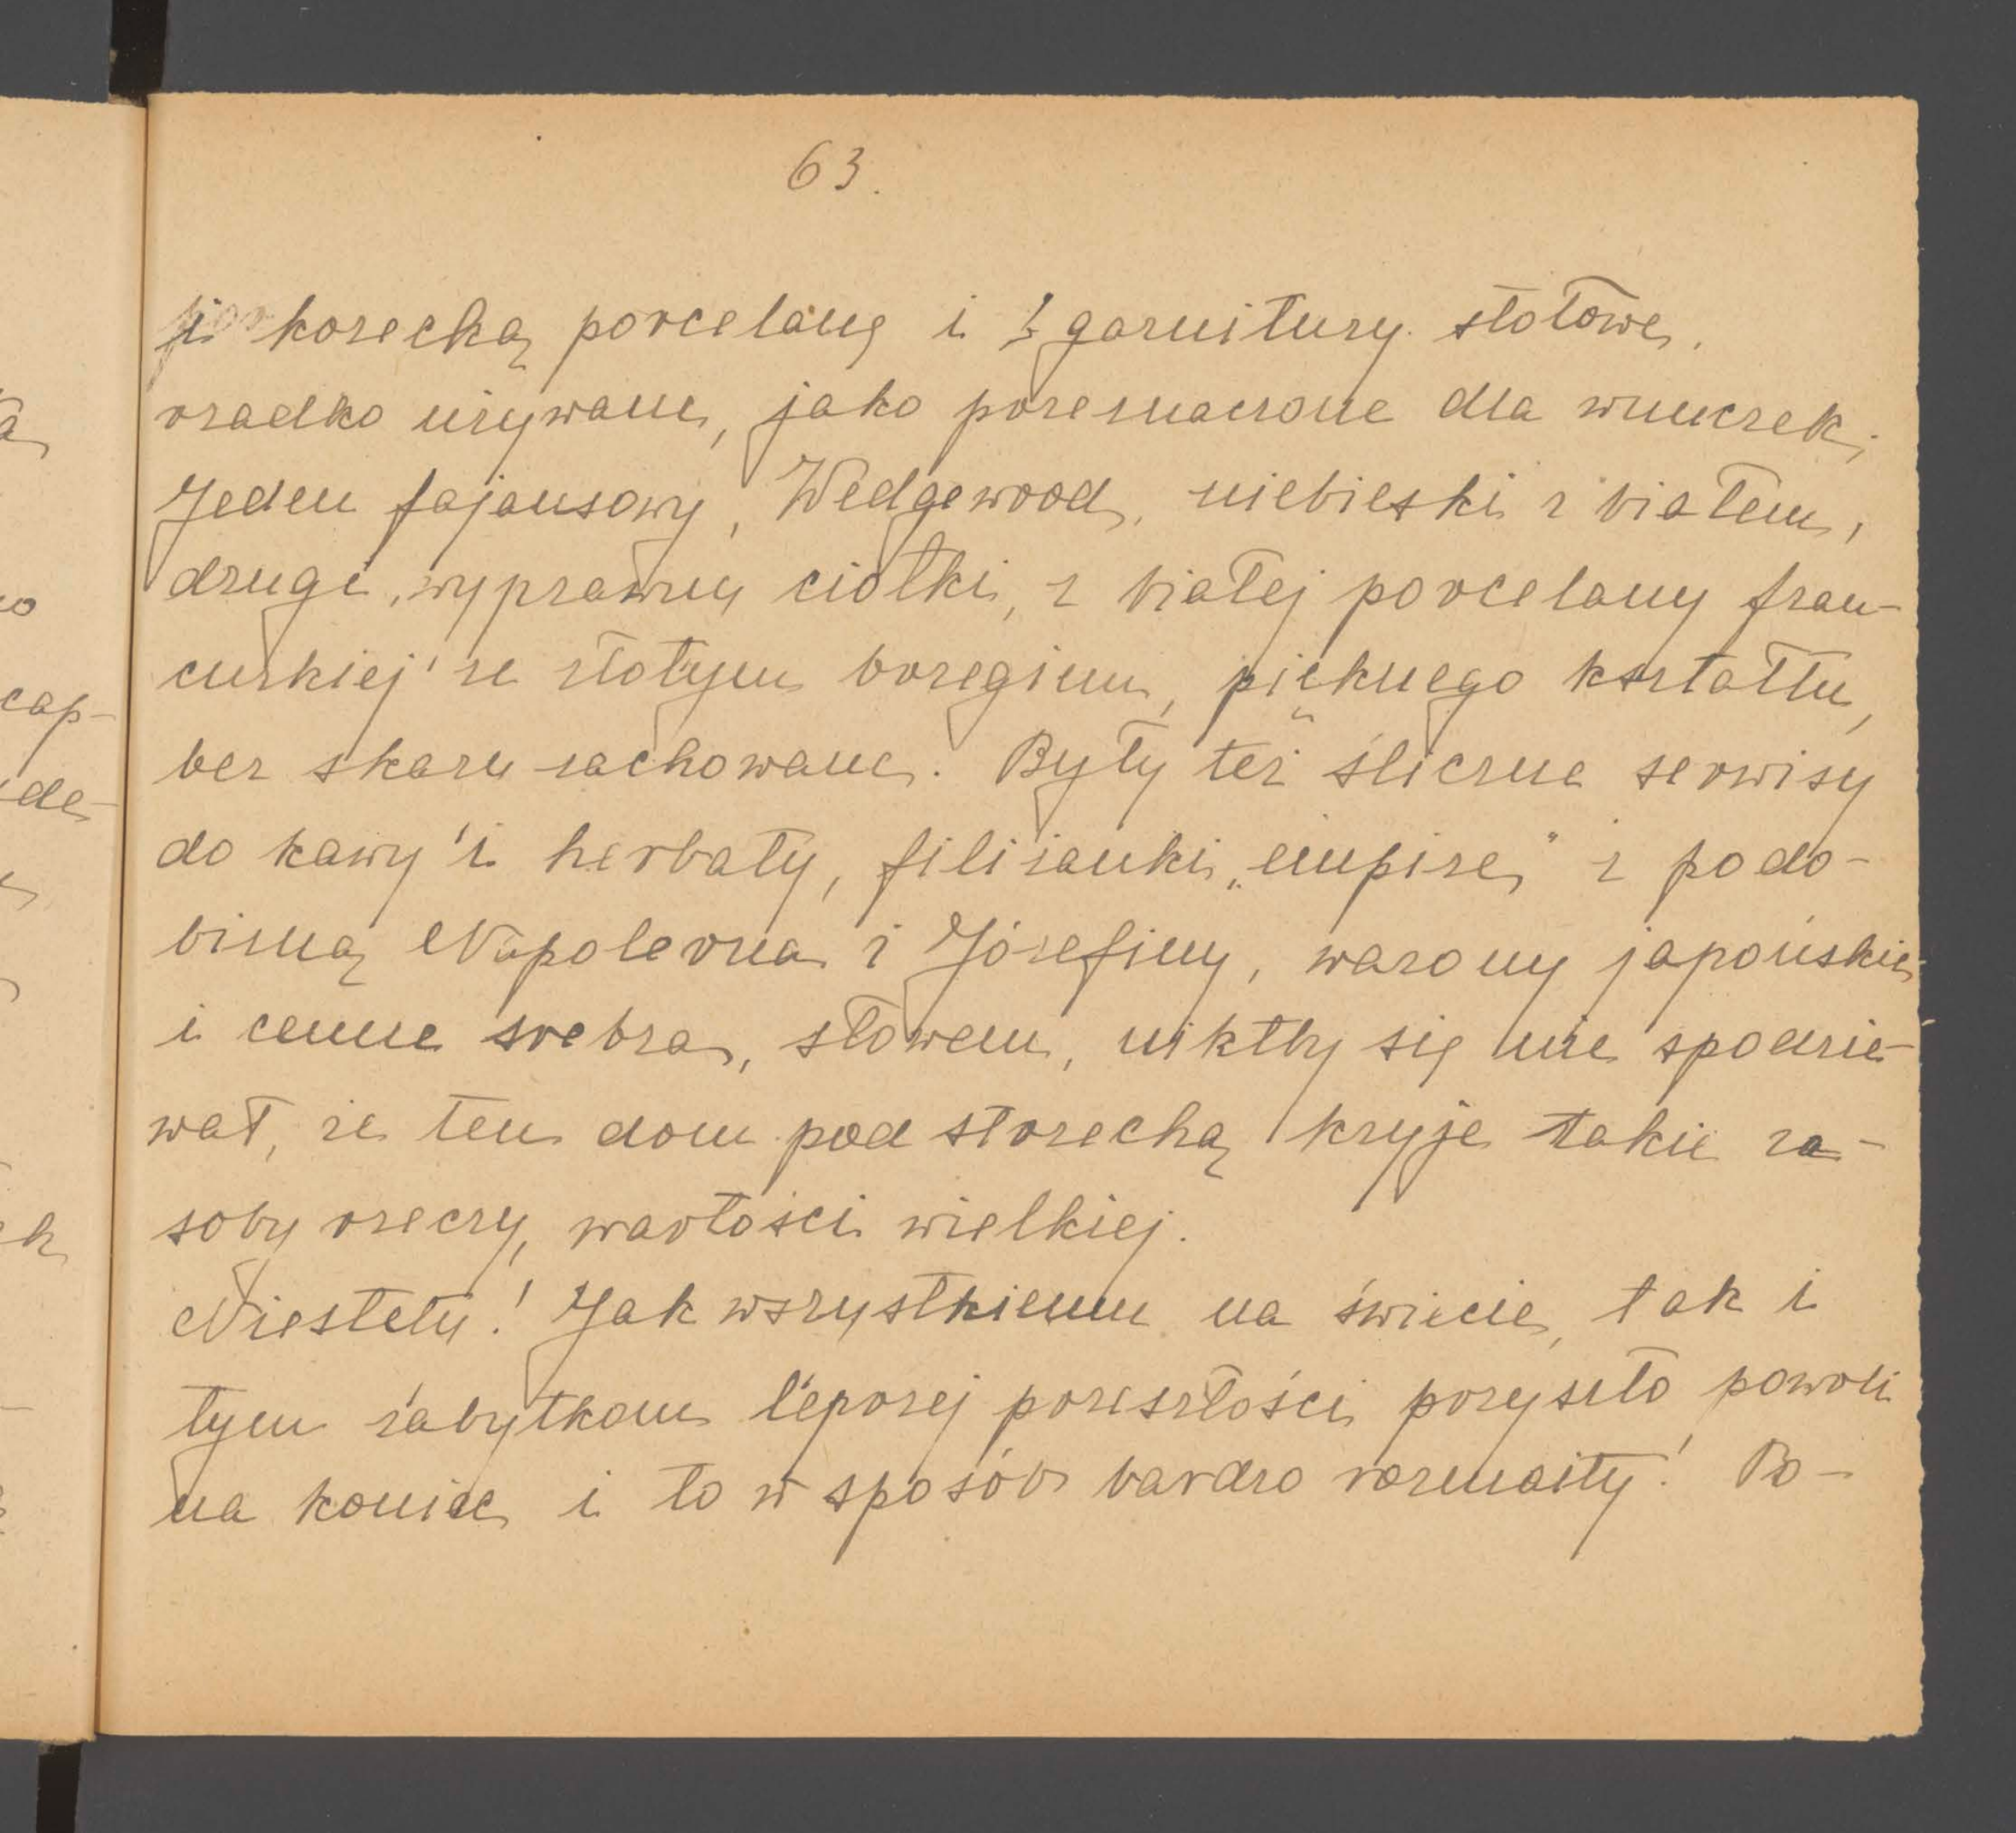 63.
i korecką porcelanę i garnitury stołowe,
rzadko używane, jako przeznaczone dla wnuczek;
Jeden fajansowy, Wedgewood, niebieski z białem,
drugi, wyprawny ciotki, z białej porcelany fran-
cuskiej ze złotym brzegiem, pięknego kształtu,
bez skazy zachowane. Były też śliczne serwisy
do kawy i herbaty, filiżanki „empire" z podo-
bizną Napoleona i Józefiny, wazony japońskie
i cenne srebra, słowem, niktby się nie spodzie-
wał, że ten dom pod strzechą kryje takie za-
soby rzeczy, wartości wielkiej.
Niestety! Jak wszystkiemu na świecie, tak i
tym zabytkom lepszej przeszłości przyszło powoli
na koniec i to w sposób bardzo rozmaity! Po-
a
o
cap-
de-
k